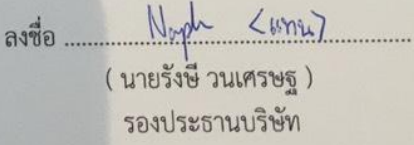 ลงชื่อ .......... <แทน> ..........
( นายรังษี วนเศรษฐ )
รองประธานบริษัท